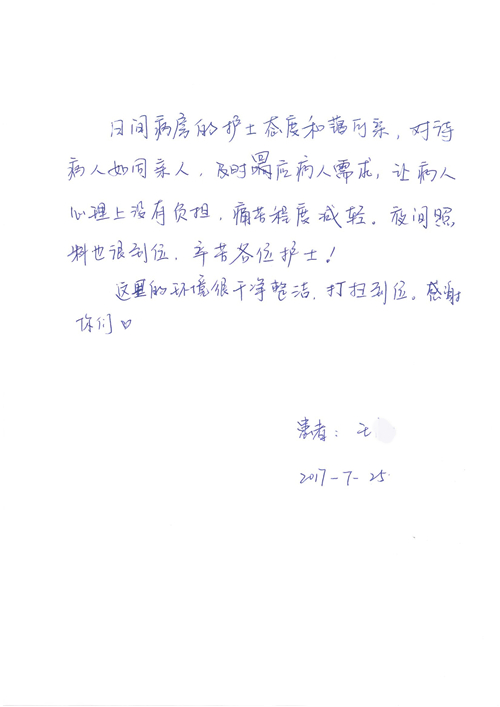 日间病房的护士态度和蔼可亲，对待
病人如同亲人，及时回应病人需求，让病人
心理上没有负担，痛苦程度减轻。夜间照
料也很到位，辛苦各位护士！
这里的环境很干净整洁，打扫到位。感谢
你们♡
患者：王
2017-7-25